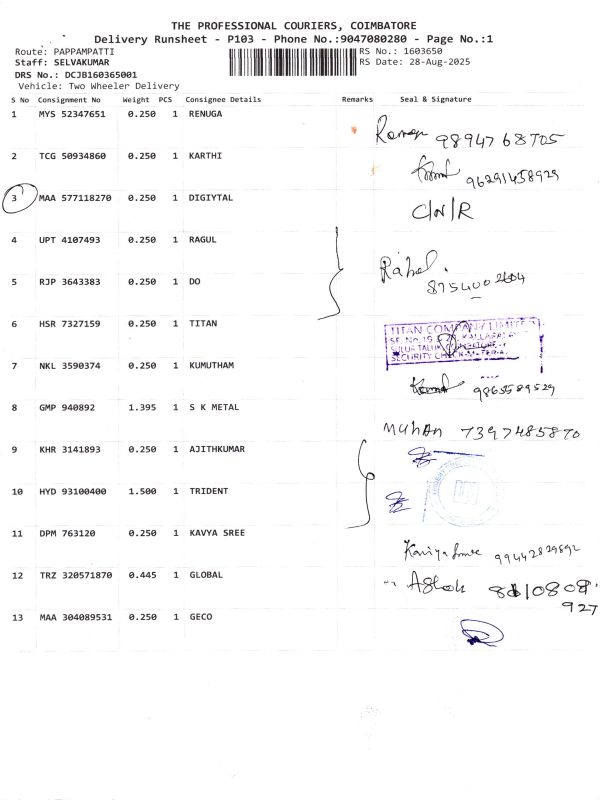 THE PROFESSIONAL COURIERS, COIMBATORE
Delivery Runsheet - P103 - Phone No.:9047080280 - Page No.:1
Route: PAPPAMPATTI RS No.: 1603650
Staff: SELVAKUMAR RS Date: 28-Aug-2025
DRS No.: DCJB160365001
Vehicle: Two Wheeler Delivery
S No Consignment No Weight PCS Consignee Details Remarks Seal & Signature
1 MYS 52347651 0.250 1 RENUGA
2 TCG 50934860 0.250 1 KARTHI
96291458929
3 MAA 577118270 0.250 1 DIGIYTAL C/N/R
4 UPT 4107493 0.250 1 RAGUL
Rahel.
5 RJP 3643383 0.250 1 DO
6 HSR 7327159 0.250 1 TITAN
TITAN COMPANY LIMITED
7 NKL 3590374 0.250 1 KUMUTHAM
9865589529
8 GMP 940892 1.395 1 S K METAL
MUHAN 7397485870
9 KHR 3141893 0.250 1 AJITHKUMAR
10 HYD 93100400 1.500 1 TRIDENT
11 DPM 763120 0.250 1 KAVYA SREE
99442829892
12 TRZ 320571870 0.445 1 GLOBAL
Ashok
927
13 MAA 304089531 0.250 1 GECO